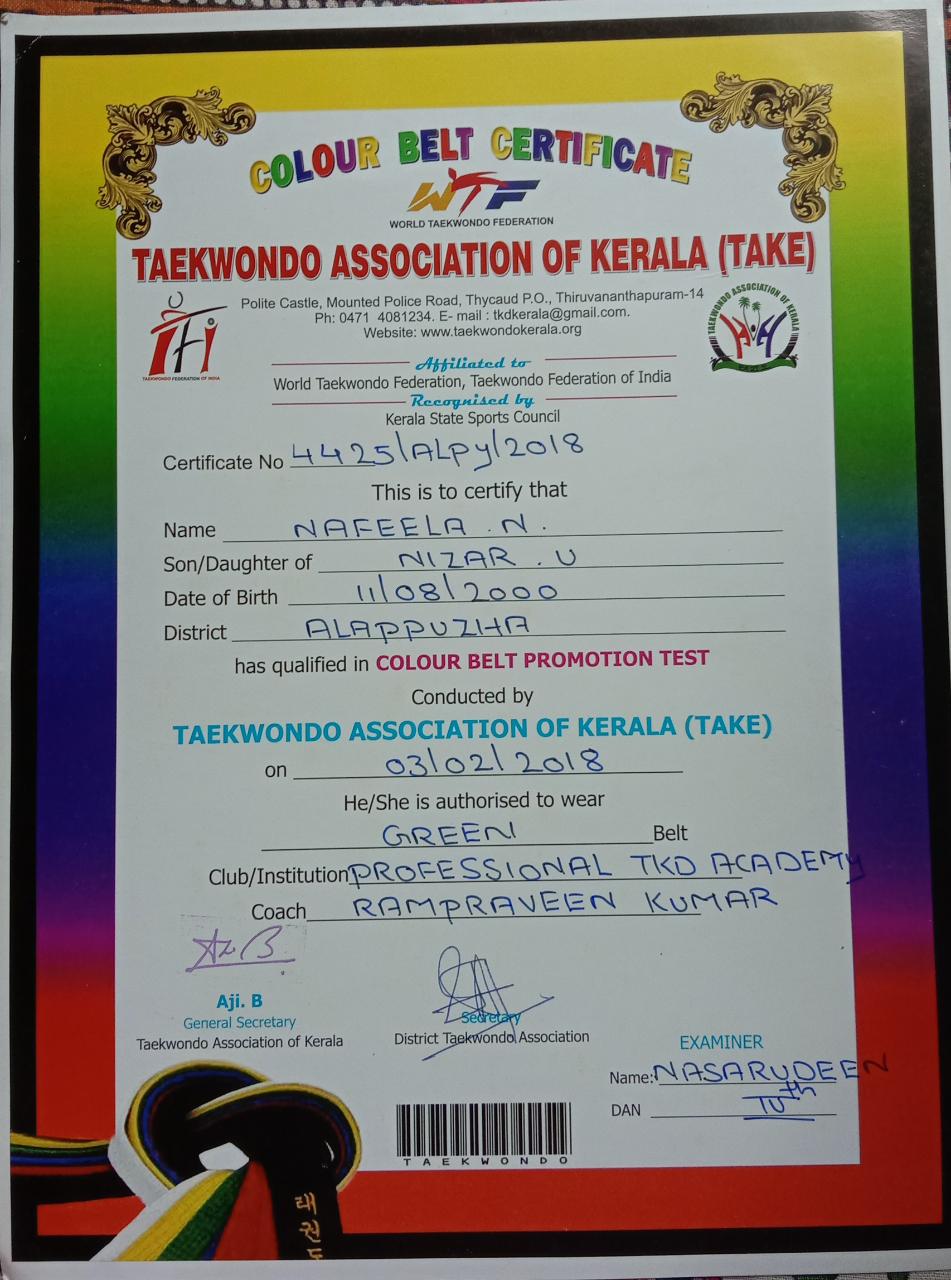 COLOUR BELT CERTIFICATE
WTF
WORLD TAEKWONDO FEDERATION
TAEKWONDO ASSOCIATION OF KERALA (TAKE)
Polite Castle, Mounted Police Road, Thycaud P.O., Thiruvananthapuram-14
Ph: 0471 4081234. E- mail : tkdkerala@gmail.com.
Website: www.taekwondokerala.org
TFI
TAEKWONDO FEDERATION OF INDIA
TAEKWONDO ASSOCIATION OF KERALA
Affiliated to
World Taekwondo Federation, Taekwondo Federation of India
Recognised by
Kerala State Sports Council
Certificate No 4425/ALPY/2018
This is to certify that
Name NAFEELA . N .
Son/Daughter of NIZAR . U
Date of Birth 11/08/2000
District ALAPPUZHA
has qualified in COLOUR BELT PROMOTION TEST
Conducted by
TAEKWONDO ASSOCIATION OF KERALA (TAKE)
on 03/02/2018
He/She is authorised to wear
GREEN Belt
Club/Institution PROFESSIONAL TKD ACADEMY
Coach RAMPRAVEEN KUMAR
Aji. B
General Secretary
Taekwondo Association of Kerala
Secretary
District Taekwondo Association
EXAMINER
Name: NASARUDEEN
DAN
TAEKWONDO
태권도